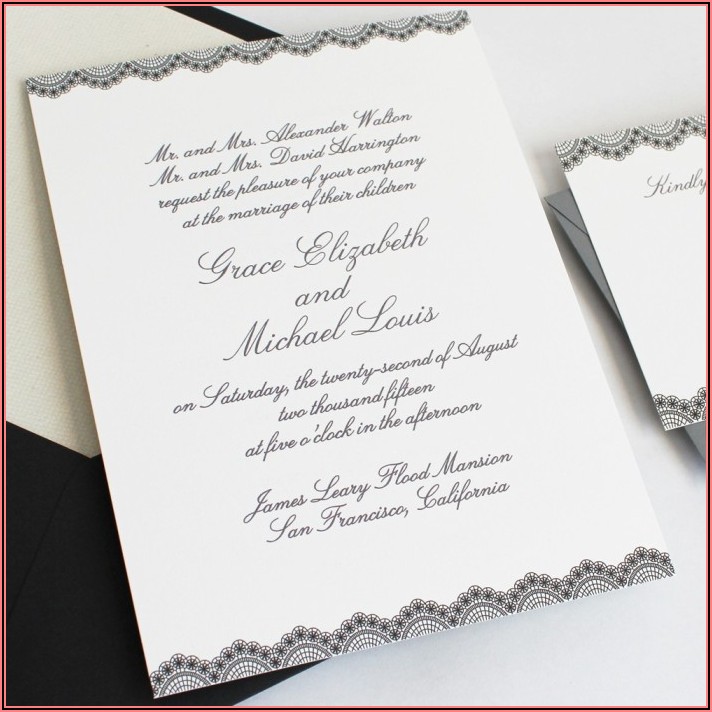 Mr. and Mrs. Alexander Walton
Mr. and Mrs. David Harrington
request the pleasure of your company
at the marriage of their children
Grace Elizabeth
and
Michael Louis
on Saturday, the twenty-second of August
two thousand fifteen
at five o'clock in the afternoon
James Leary Flood Mansion
San Francisco, California
Kindly